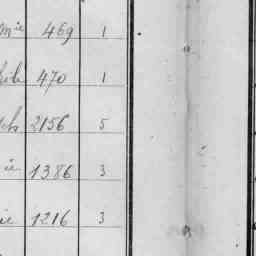 mie 469 1
470 1
2156 5
ie 1386 3
ie 1216 3